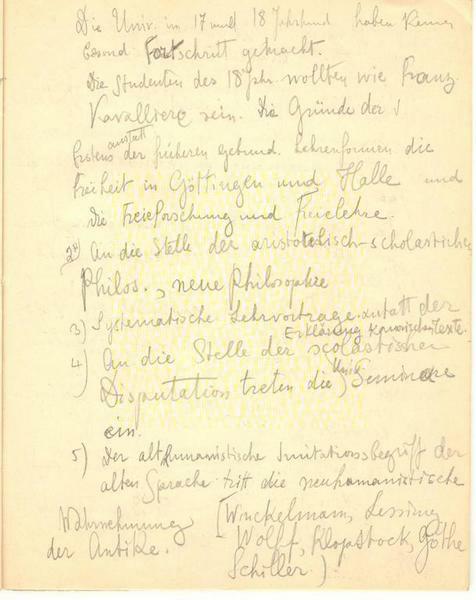 Die Univ. im 17 und 18 Jahrhund haben keinen
besond Fortschritt gemacht.
Die Studenten des 18 Jhr. wollten wie Franz.
Kavalliere sein. Die Gründe der
Erstens anstatt der früheren gebund. Lehrenformen die
Freiheit in Göttingen und Halle und
die Freieforschung und Freielehre.
2) An die Stelle der aristotelisch-scholastischen
Philos., neue Philosophie
3) Systematische Lehrvortrage anstatt der
Erklärung Kanonischen Texte.
4) An die Stelle der scolastischen
Disputation treten die Univ. Seminare
ein.
5) Der althumanistische Imitationsbegriff der
alten Sprache tritt die neuhumanistische
Wahrnehmung
der Antike.
[Winckelmann, Lessing
Wolff, Klopstock, Göthe
Schiller.)